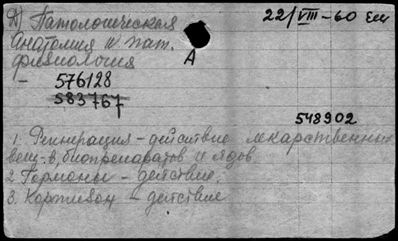 Д) Патологическая
22/VIII-60
Анатомия и пат.
физиология
А
— 576128
583767
548902
1. Регенерация - действие лекарственных
вещ-в, биопрепаратов и ядов
2. Гормоны - действие.
3. Кортизон - действие